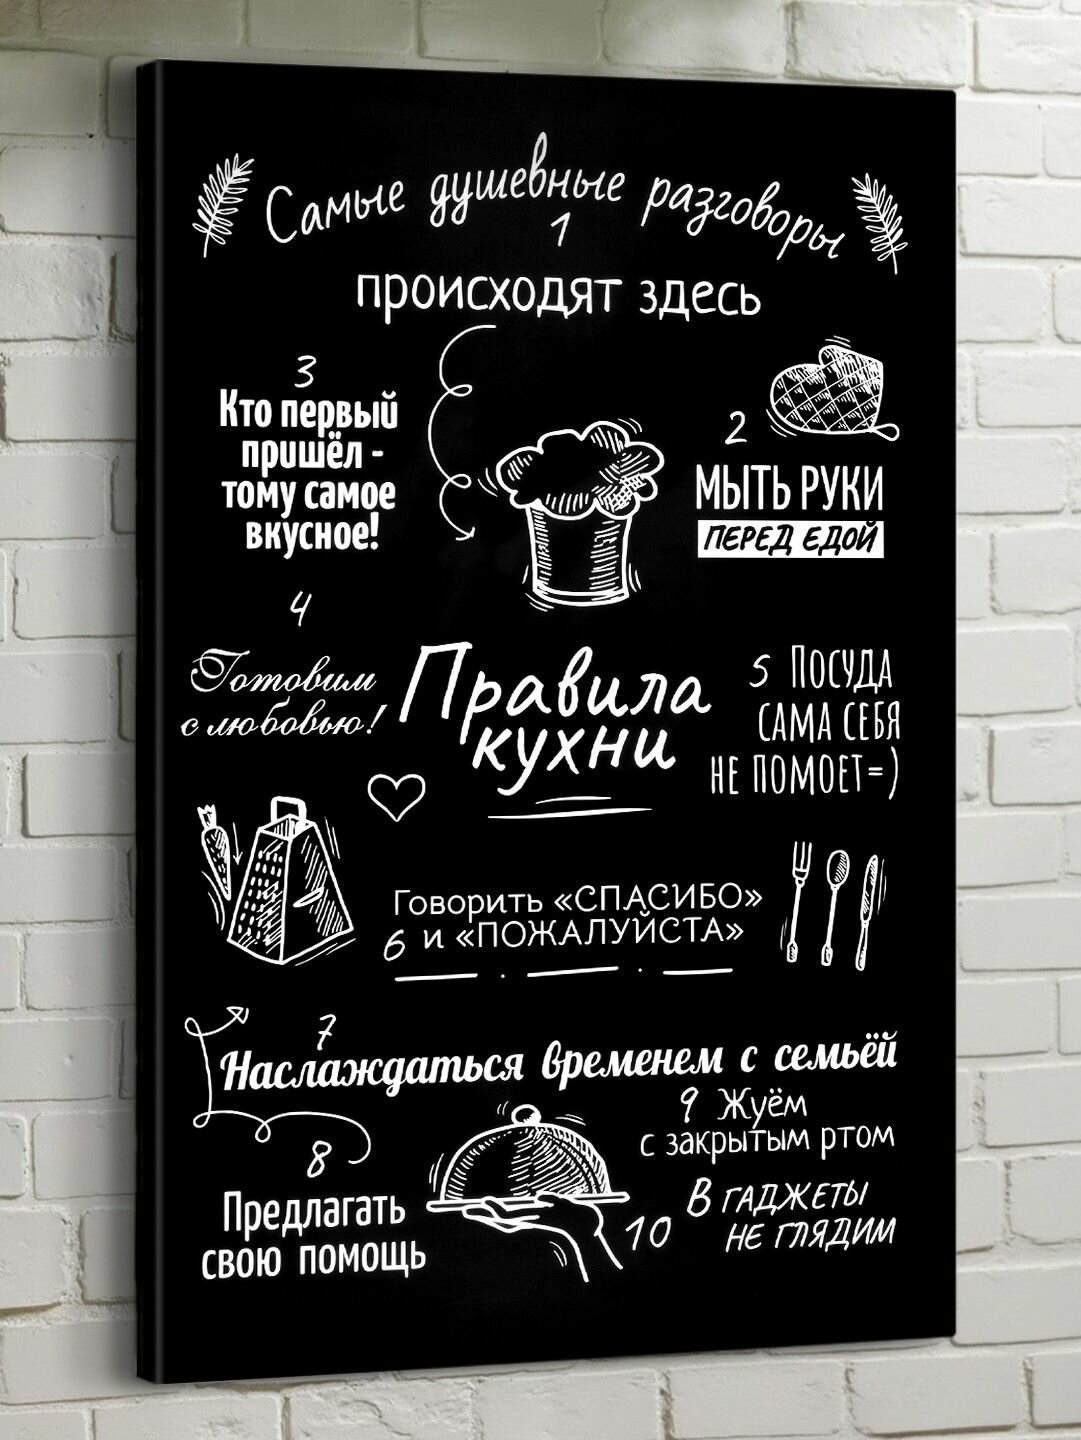 Самые душевные разговоры
1
происходят здесь
3
Кто первый
пришёл -
тому самое
вкусное!
2
МЫТЬ РУКИ
ПЕРЕД ЕДОЙ
4
Готовим
с любовью!
Правила
кухни
5 ПОСУДА
САМА СЕБЯ
НЕ ПОМОЕТ=)
Говорить «СПАСИБО»
6 и «ПОЖАЛУЙСТА»
7
Наслаждаться временем с семьёй
8
Предлагать
свою помощь
9 Жуём
с закрытым ртом
10 В ГАДЖЕТЫ
НЕ ГЛЯДИМ